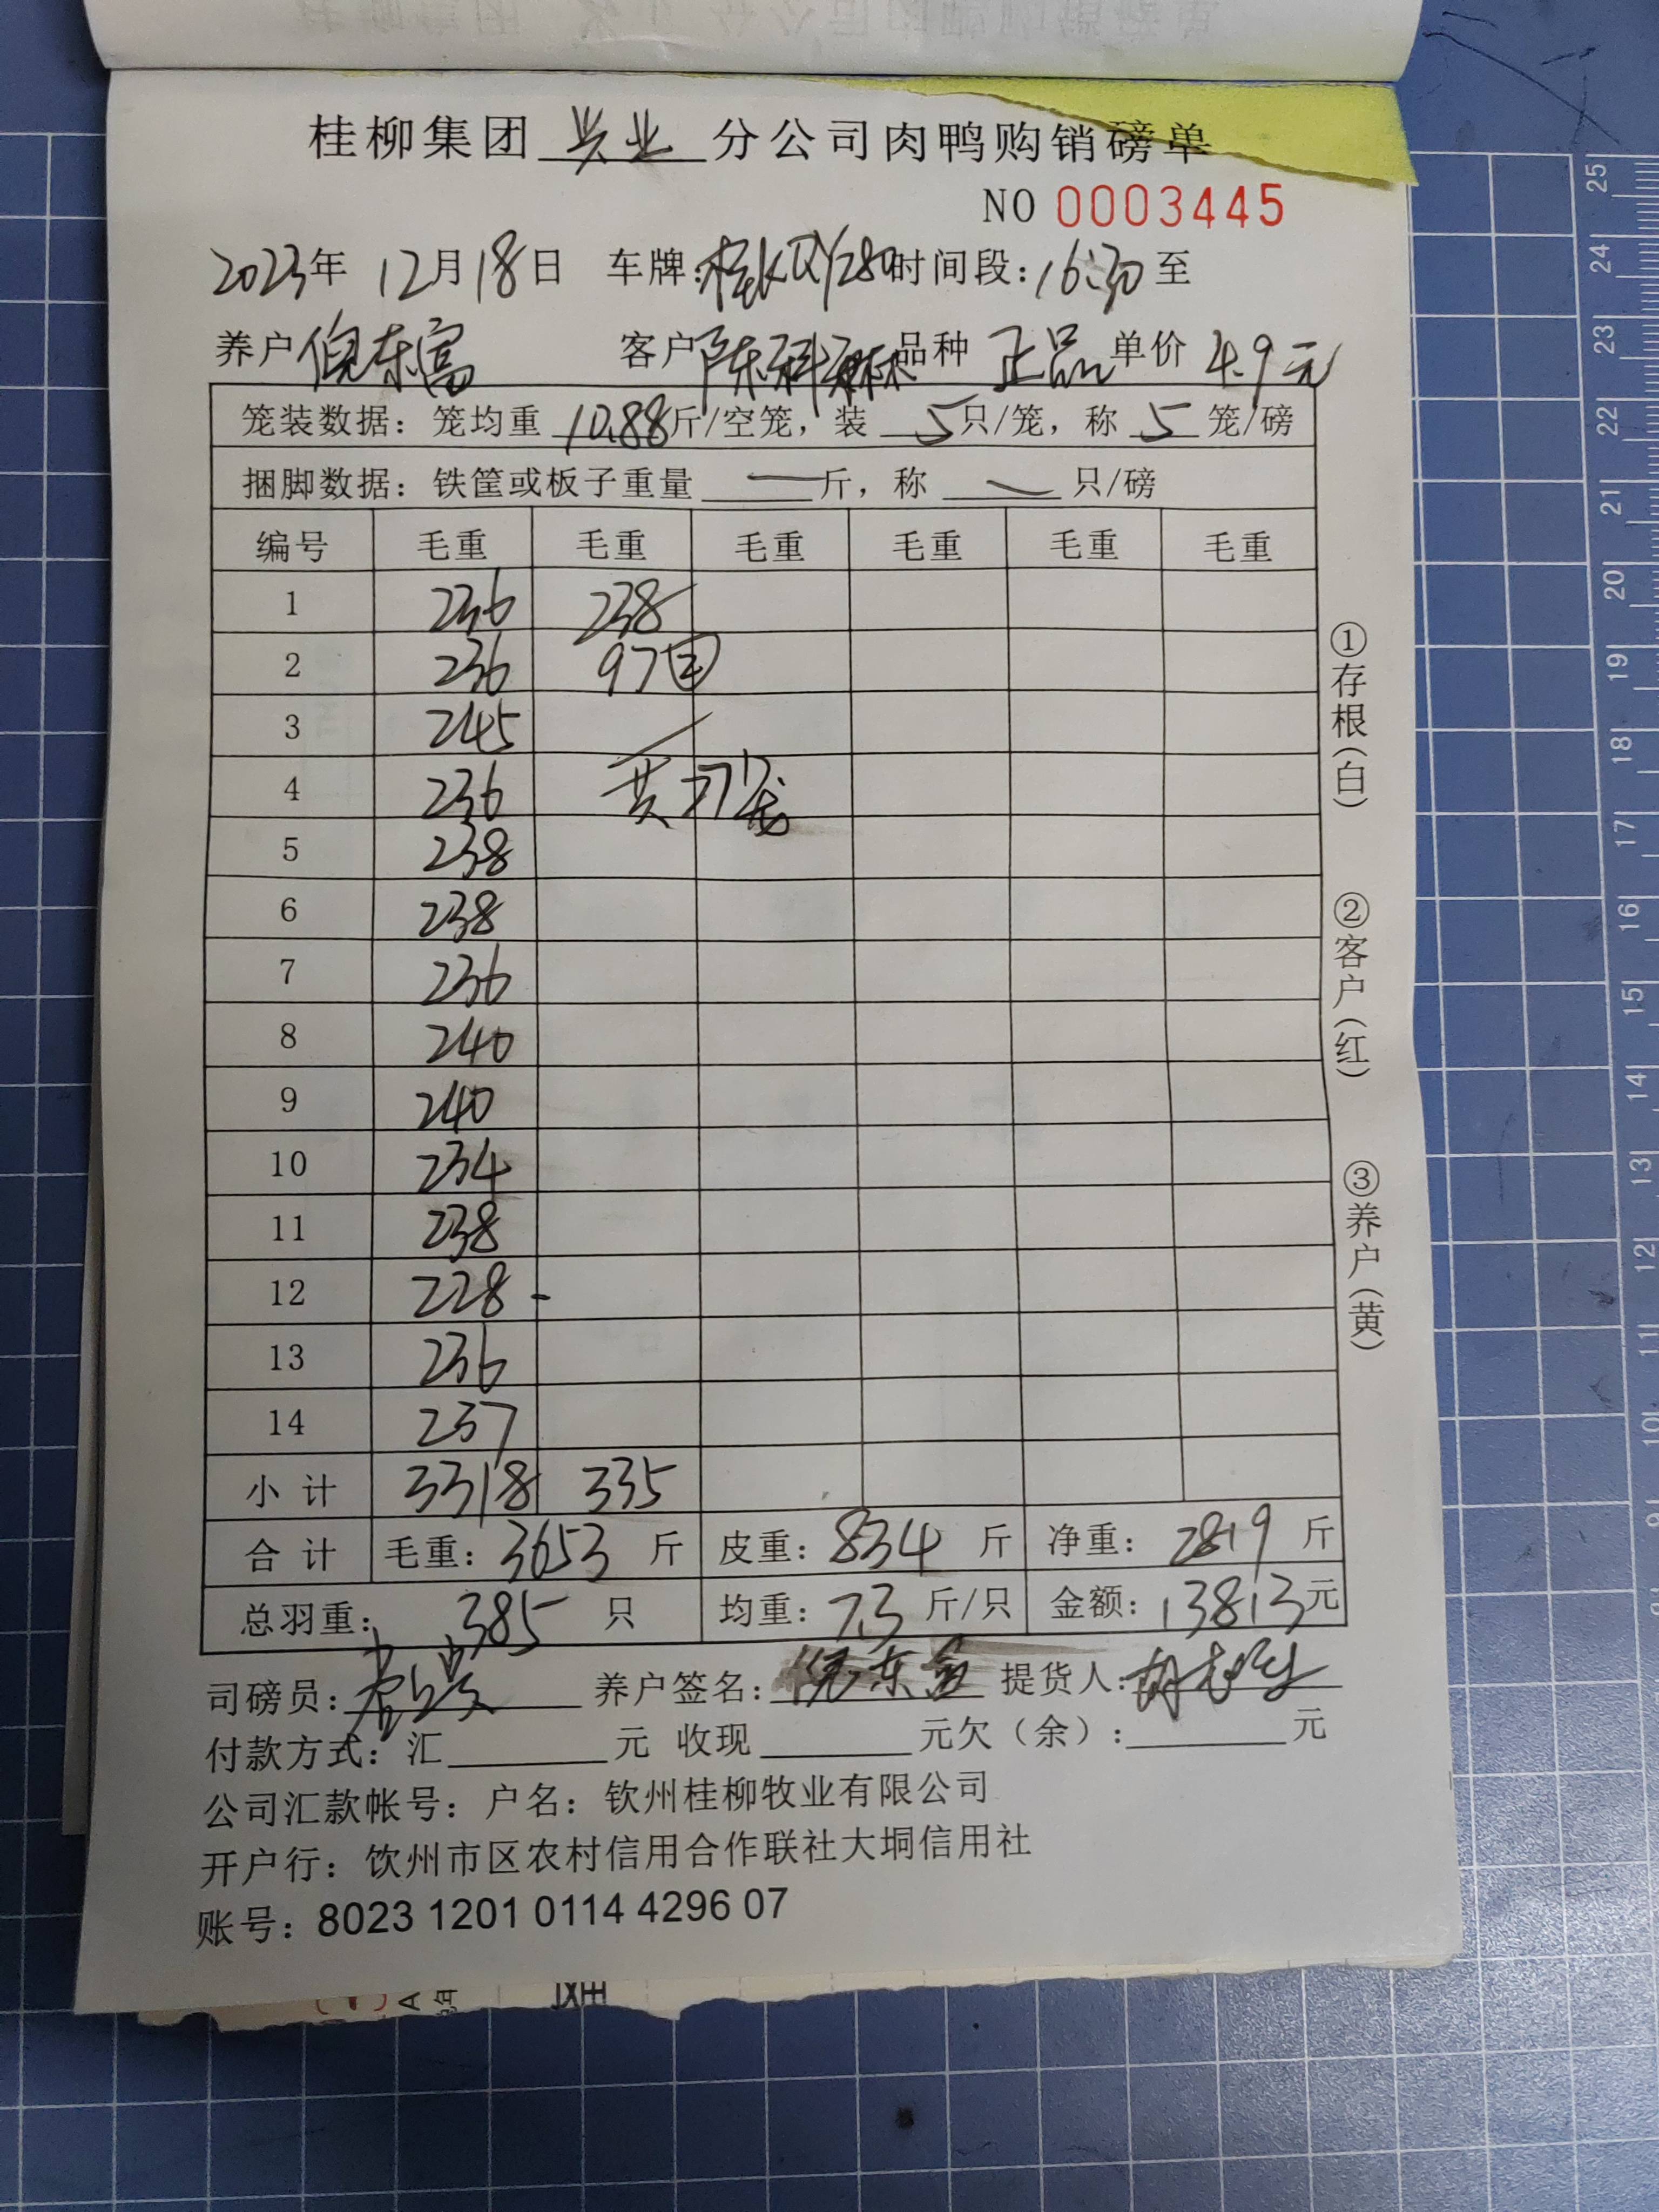 桂柳集团 兴业 分公司肉鸭购销磅单
NO 0003445
2023年 12月18日 车牌:桂KQY280 时间段:16:30至
养户 倪东富 客户 陈科 品种 正品 单价 4.9元
笼装数据: 笼均重 10.88斤/空笼, 装 5只/笼, 称 5 笼/磅
捆脚数据: 铁筐或板子重量 — 斤, 称 — 只/磅
编号 毛重 毛重 毛重 毛重 毛重 毛重
1 236 238
2 236 97②
3 245
4 236 共77笼
5 238
6 238
7 236
8 240
9 240
10 234
11 238
12 228 -
13 236
14 237
小计 3318 335
合计 毛重: 3653 斤 皮重: 834 斤 净重: 2819 斤
总羽重: 385 只 均重: 7.3 斤/只 金额: 13813元
司磅员: 养户签名: 倪东富 提货人:
付款方式: 汇 元 收现 元欠(余): 元
公司汇款帐号: 户名: 钦州桂柳牧业有限公司
开户行: 钦州市区农村信用合作联社大垌信用社
账号: 8023 1201 0114 4296 07
①存根(白)
②客户(红)
③养户(黄)
25
24
23
22
21
20
19
18
17
16
15
14
13
12
11
10
9